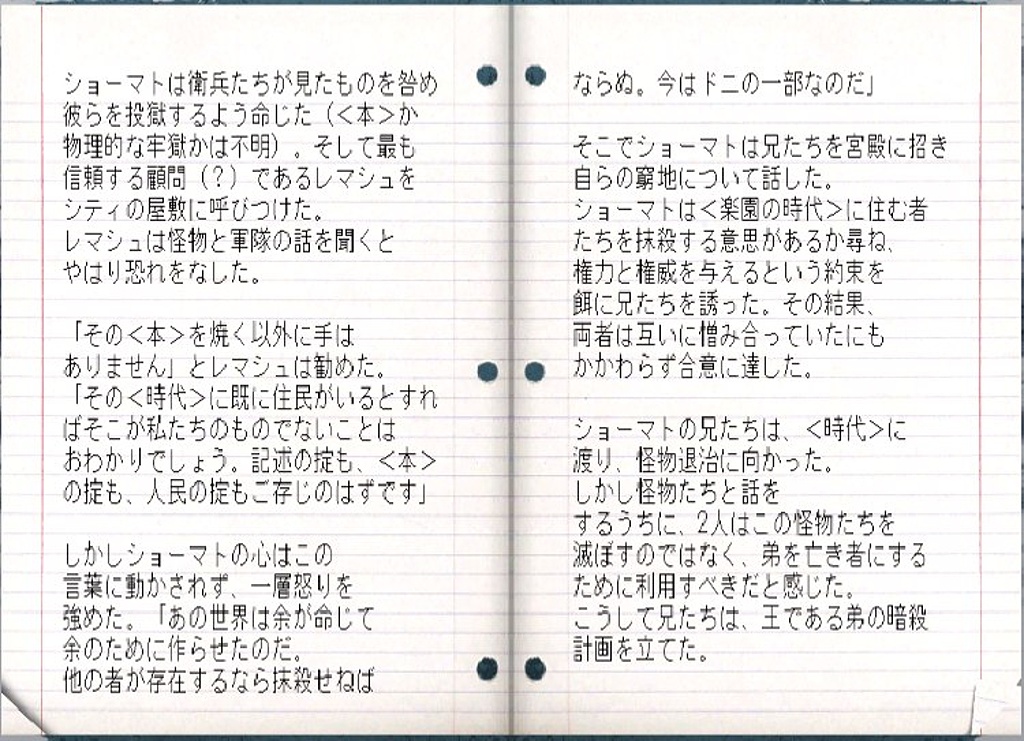 ショーマトは衛兵たちが見たものを咎め
彼らを投獄するよう命じた（＜本＞か
物理的な牢獄かは不明）。そして最も
信頼する顧問（？）であるレマシュを
シティの屋敷に呼びつけた。
レマシュは怪物と軍隊の話を聞くと
やはり恐れをなした。
「その＜本＞を焼く以外に手は
ありません」とレマシュは勧めた。
「その＜時代＞に既に住民がいるとすれ
ばそこが私たちのものでないことは
おわかりでしょう。記述の掟も、＜本＞
の掟も、人民の掟もご存じのはずです」
しかしショーマトの心はこの
言葉に動かされず、一層怒りを
強めた。「あの世界は余が命じて
余のために作らせたのだ。
他の者が存在するなら抹殺せねば
ならぬ。今はドニの一部なのだ」
そこでショーマトは兄たちを宮殿に招き
自らの窮地について話した。
ショーマトは＜楽園の時代＞に住む者
たちを抹殺する意思があるか尋ね、
権力と権威を与えるという約束を
餌に兄たちを誘った。その結果、
両者は互いに憎み合っていたにも
かかわらず合意に達した。
ショーマトの兄たちは、＜時代＞に
渡り、怪物退治に向かった。
しかし怪物たちと話を
するうちに、2人はこの怪物たちを
滅ぼすのではなく、弟を亡き者にする
ために利用すべきだと感じた。
こうして兄たちは、王である弟の暗殺
計画を立てた。